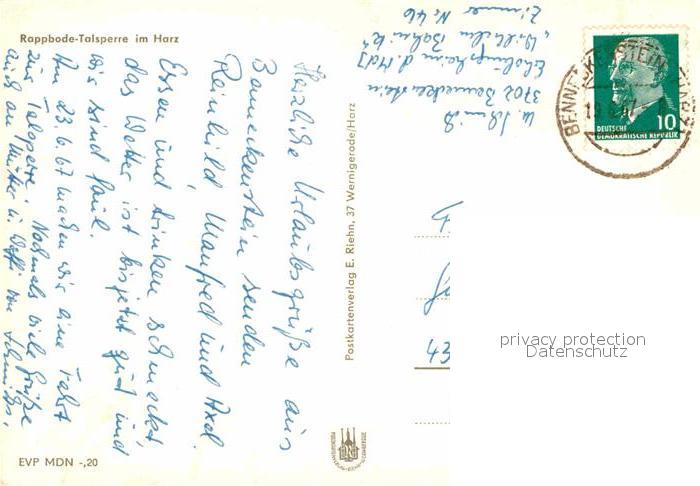 Rappbode-Talsperre im Harz
Herzliche Urlaubsgrüße aus
Benneckenstein senden
Reinhild, Manfred und Axel.
Essen und trinken schmeckt,
das Wetter ist bisjetzt gut und
wir sind faul.
Am 23.6.67 machen wir eine Fahrt
zur Talsperre. Nochmals viele Grüße
auch an Mutter u. von Schmidts.
EVP MDN -,20
Postkartenverlag E. Riehn, 37 Wernigerode/Harz
M. Schmidt
3702 Benneckenstein
Erholungsheim d. MdI
"Wilhelm Bahnik"
Zimmer No 46
BENNECKENSTEIN (HARZ)
10
DEUTSCHE
DEMOKRATISCHE REPUBLIK
43
privacy protection
Datenschutz